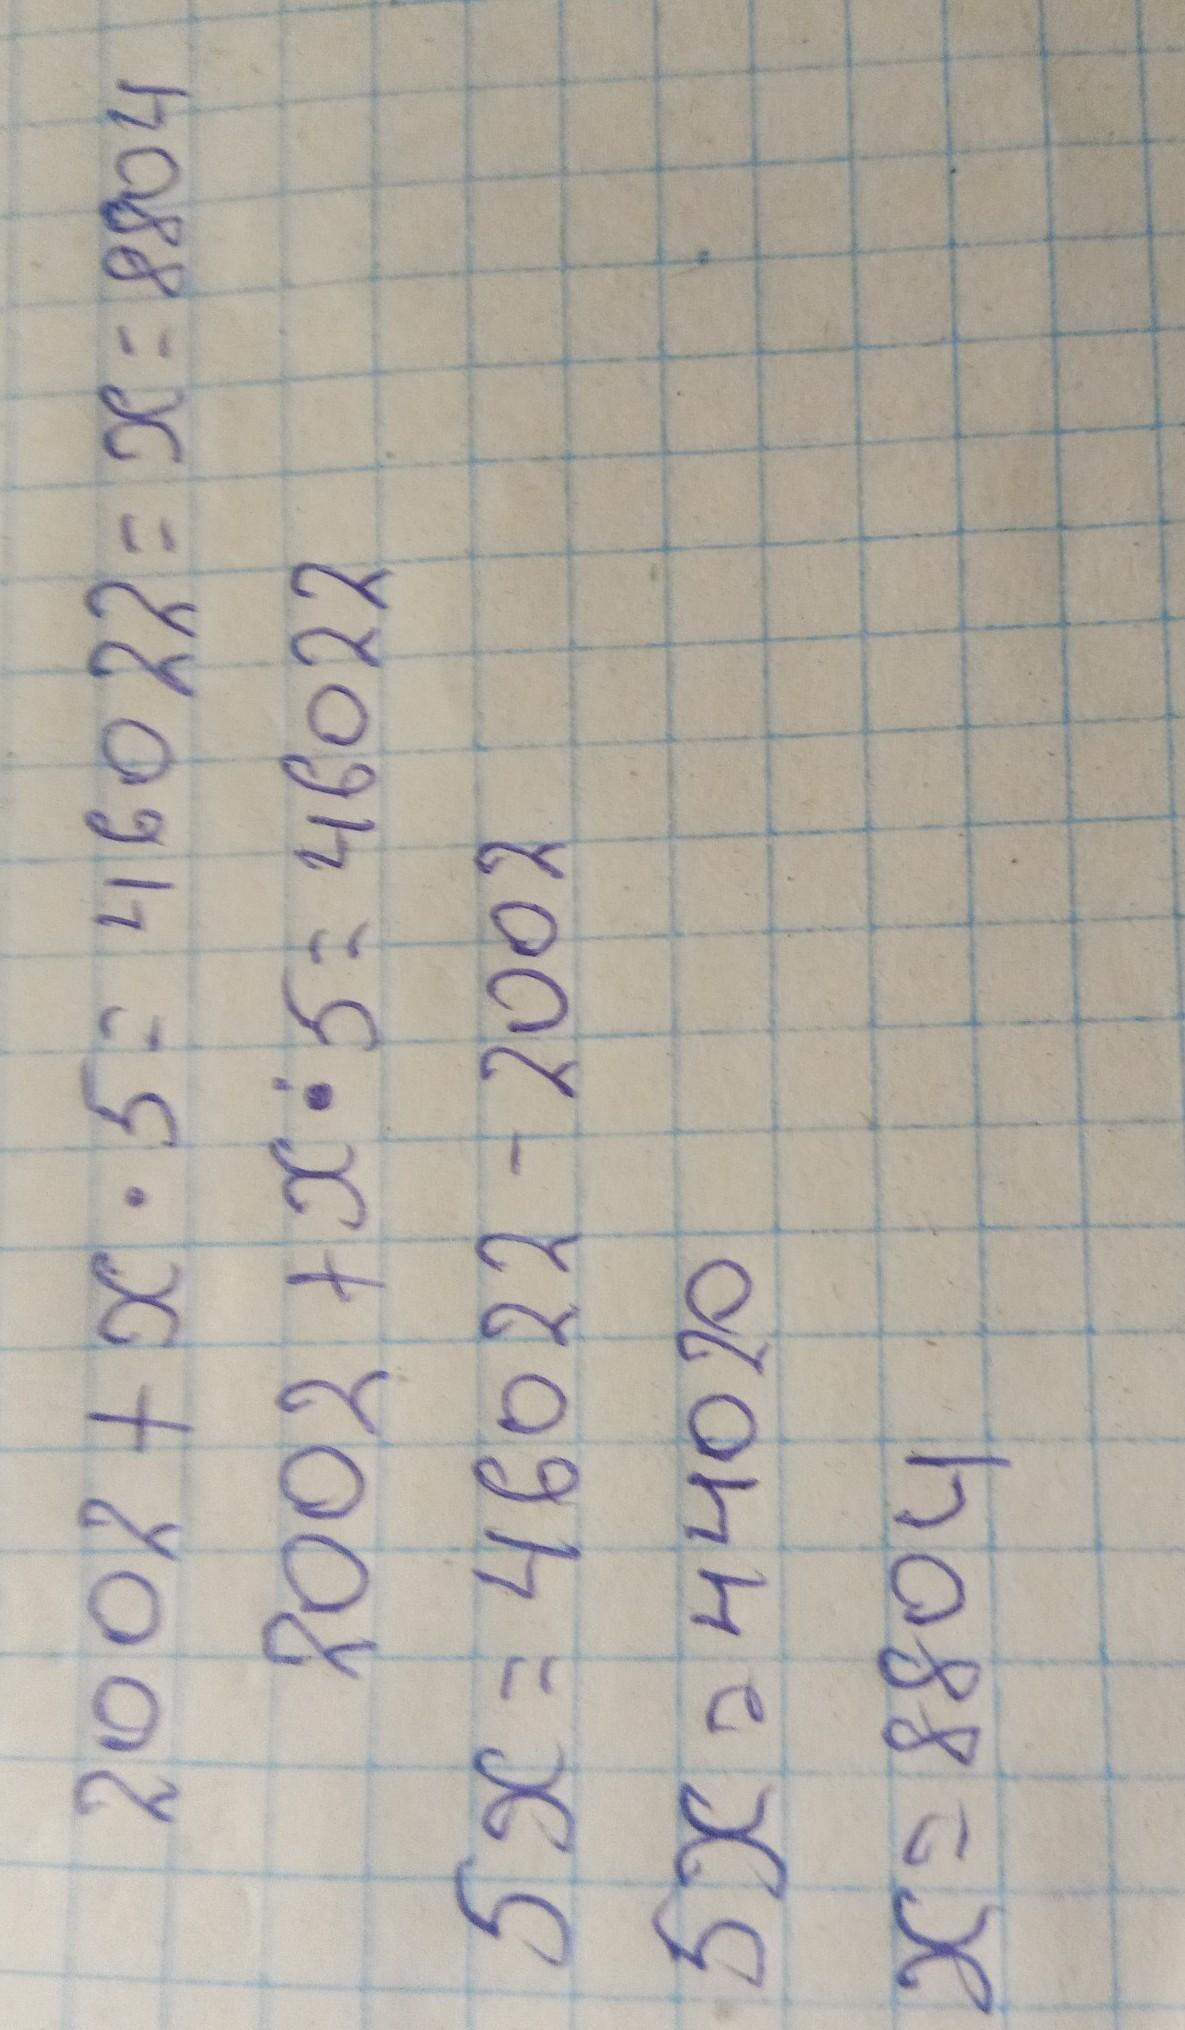 2002 + x · 5 = 46022 = x = 8804
2002 + x · 5 = 46022
5x = 46022 - 2002
5x = 44020
x = 8804